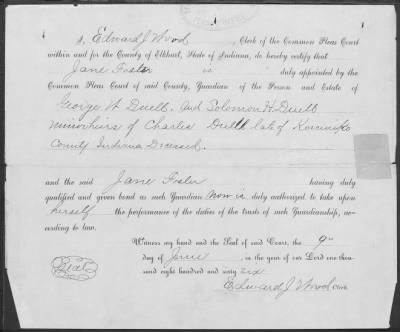 I, Edward J. Wood, Clerk of the Common Pleas Court
within and for the County of Elkhart, State of Indiana, do hereby certify that
Jane Foster is duly appointed by the
Common Pleas Court of said County, Guardian of the Person and Estate of
George W Duell. and Solomon H. Duell
minor heirs of Charles Duell late of Kosciusko
County Indiana Deceased.
and the said Jane Foster having duly
qualified and given bond as such Guardian Now is duly authorized to take upon
herself the performance of the duties of the trusts of such Guardianship, ac-
cording to law.
Witness my hand and the Seal of said Court, the 9"
day of June in the year of our Lord one thou-
sand eight hundred and sixty six
Seal
Edward J Wood Clerk